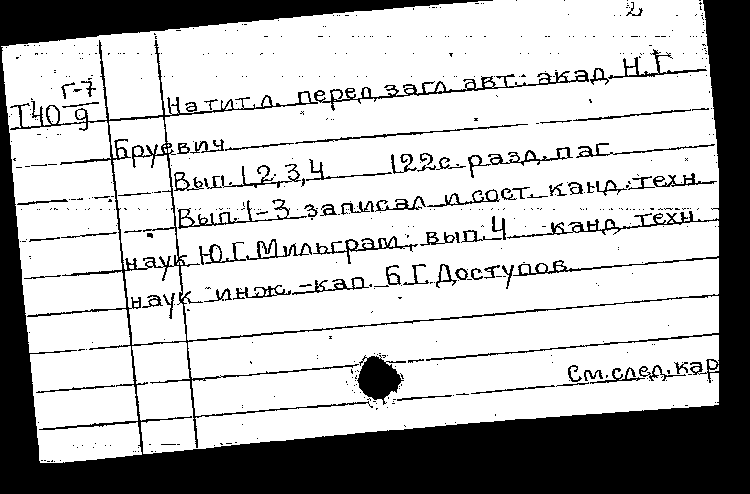 2
Г-7
Т40 9
На тит. л. перед загл. авт.: акад. Н.Г.
Бруевич
Вып. 1,2,3,4 122с. разд. паг.
Вып. 1-3 записал и сост. канд. техн.
наук Ю.Г. Мильграм; вып. 4 канд. техн.
наук инж.-кап. Б.Г. Доступов.
См. след. кар